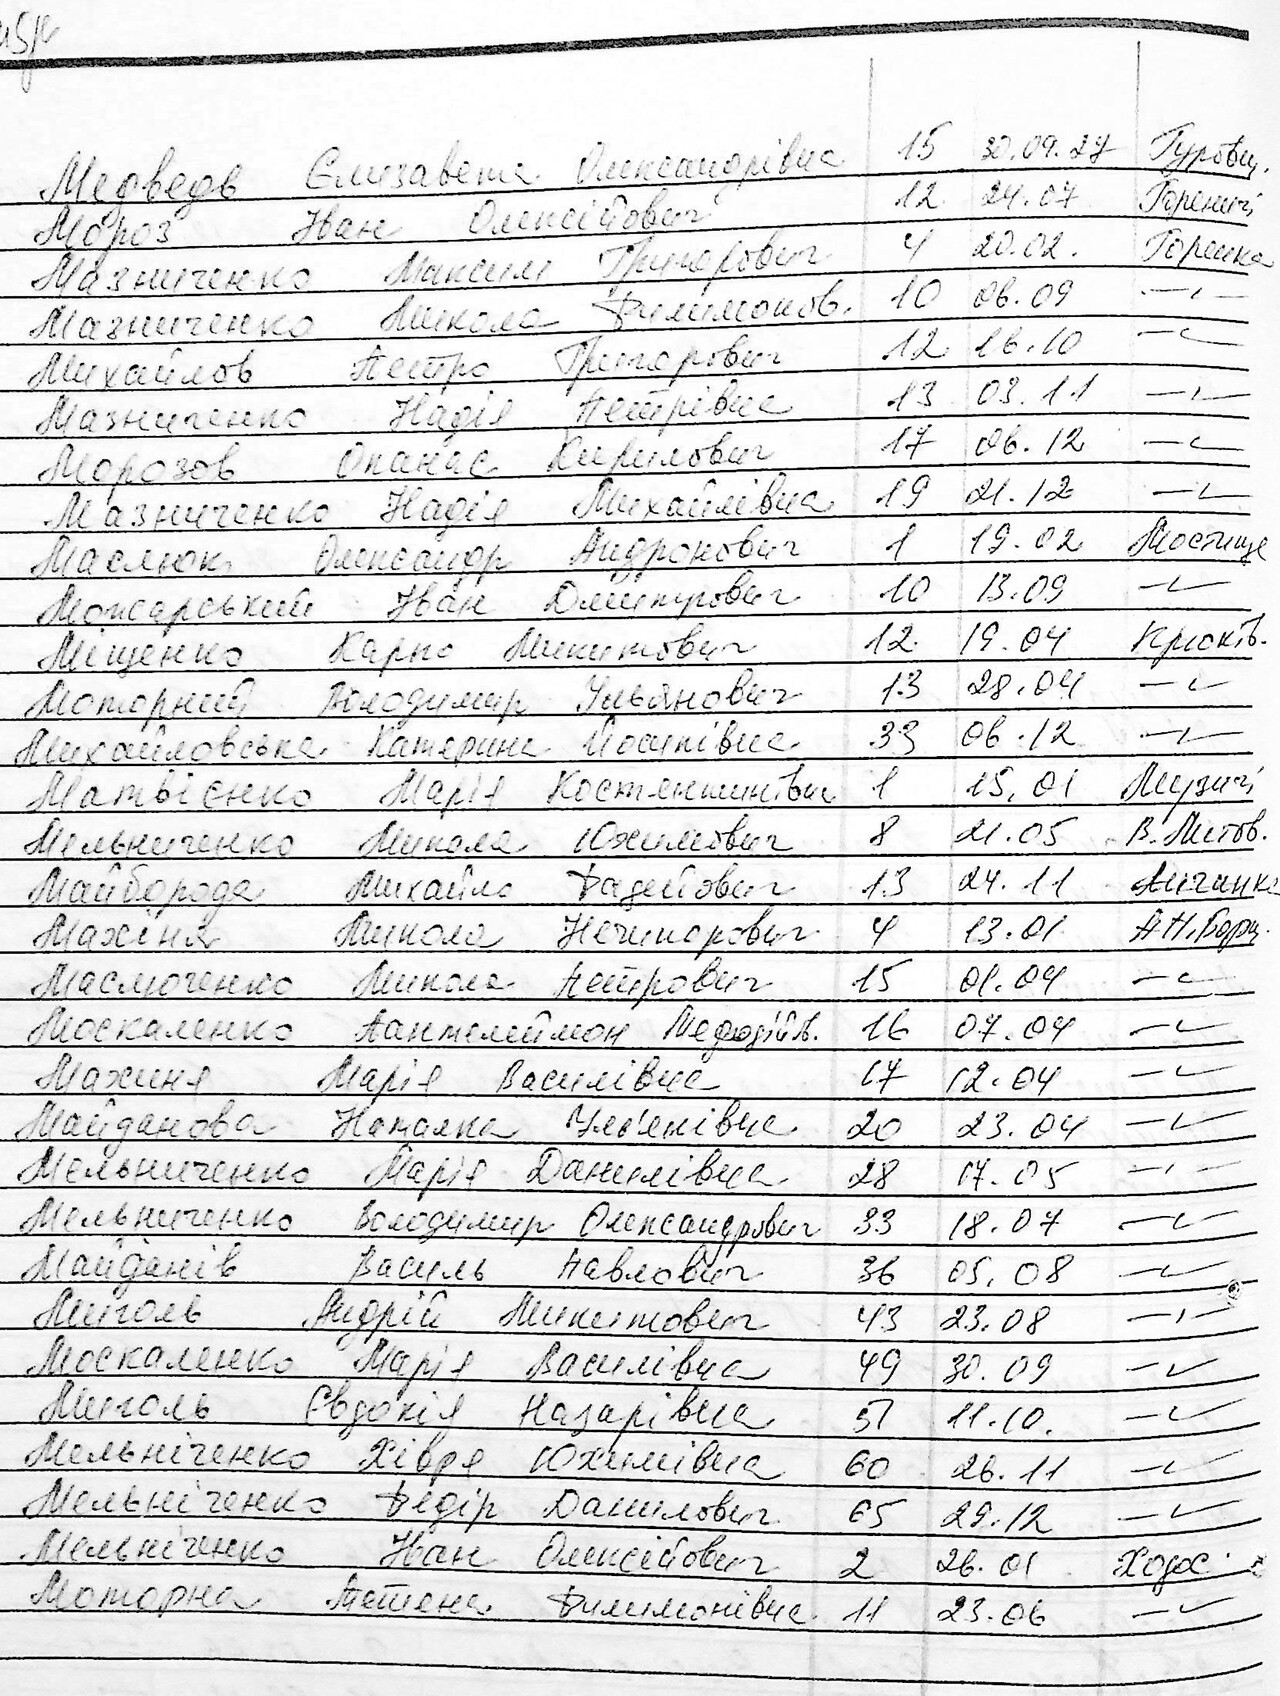 Медведь Єлизавета Олександрівна 15 30.09.27 Гурівщ.
Мороз Іван Олексійович 12 24.07 Гореничі
Мазниченко Максим Григорович 4 20.02. Горенка
Мазниченко Микола Филимонов. 10 06.09 -"-
Михайлов Петро Григорович 12 16.10 -"-
Мазниченко Надія Петрівна 13 03.11 -"-
Морозов Опанас Кирилович 17 06.12 -"-
Мазниченко Надія Михайлівна 19 21.12 -"-
Маслюк Олександр Андронович 1 19.02 Мостище
Можарський Іван Дмитрович 10 13.09 -"-
Міщенко Карпо Микитович 12 19.04 Крюків.
Моторний Володимир Ульянович 13 28.04 -"-
Михайловська Катерина Йосипівна 33 06.12 -"-
Матвієнко Марія Костянтинівна 1 15.01 Музичі
Мельниченко Микола Юхимович 8 21.05 В.Литов.
Майборода Михайло Фадейович 13 24.11 Личанка
Махіня Микола Нечипорович 4 13.01 П.П.Борщ.
Маслюченко Микола Петрович 15 01.04 -"-
Москаленко Пантелеймон Мефодійов. 16 07.04 -"-
Махиня Марія Василівна 17 12.04 -"-
Майданова Наталка Ульянівна 20 23.04 -"-
Мельниченко Марія Данилівна 28 17.05 -"-
Мельниченко Володимир Олександрович 33 18.07 -"-
Майданів Василь Павлович 36 05.08 -"-
Миголь Андрій Микитович 43 23.08 -"-
Москаленко Марія Василівна 49 30.09 -"-
Миголь Євдокія Назарівна 51 11.10. -"-
Мельніченко Хівря Юхимівна 60 26.11 -"-
Мельніченко Федір Данилович 65 29.12 -"-
Мельніченко Іван Олексійович 2 26.01 Ходж.
Моторна Тетяна Филимонівна 11 23.06 -"-